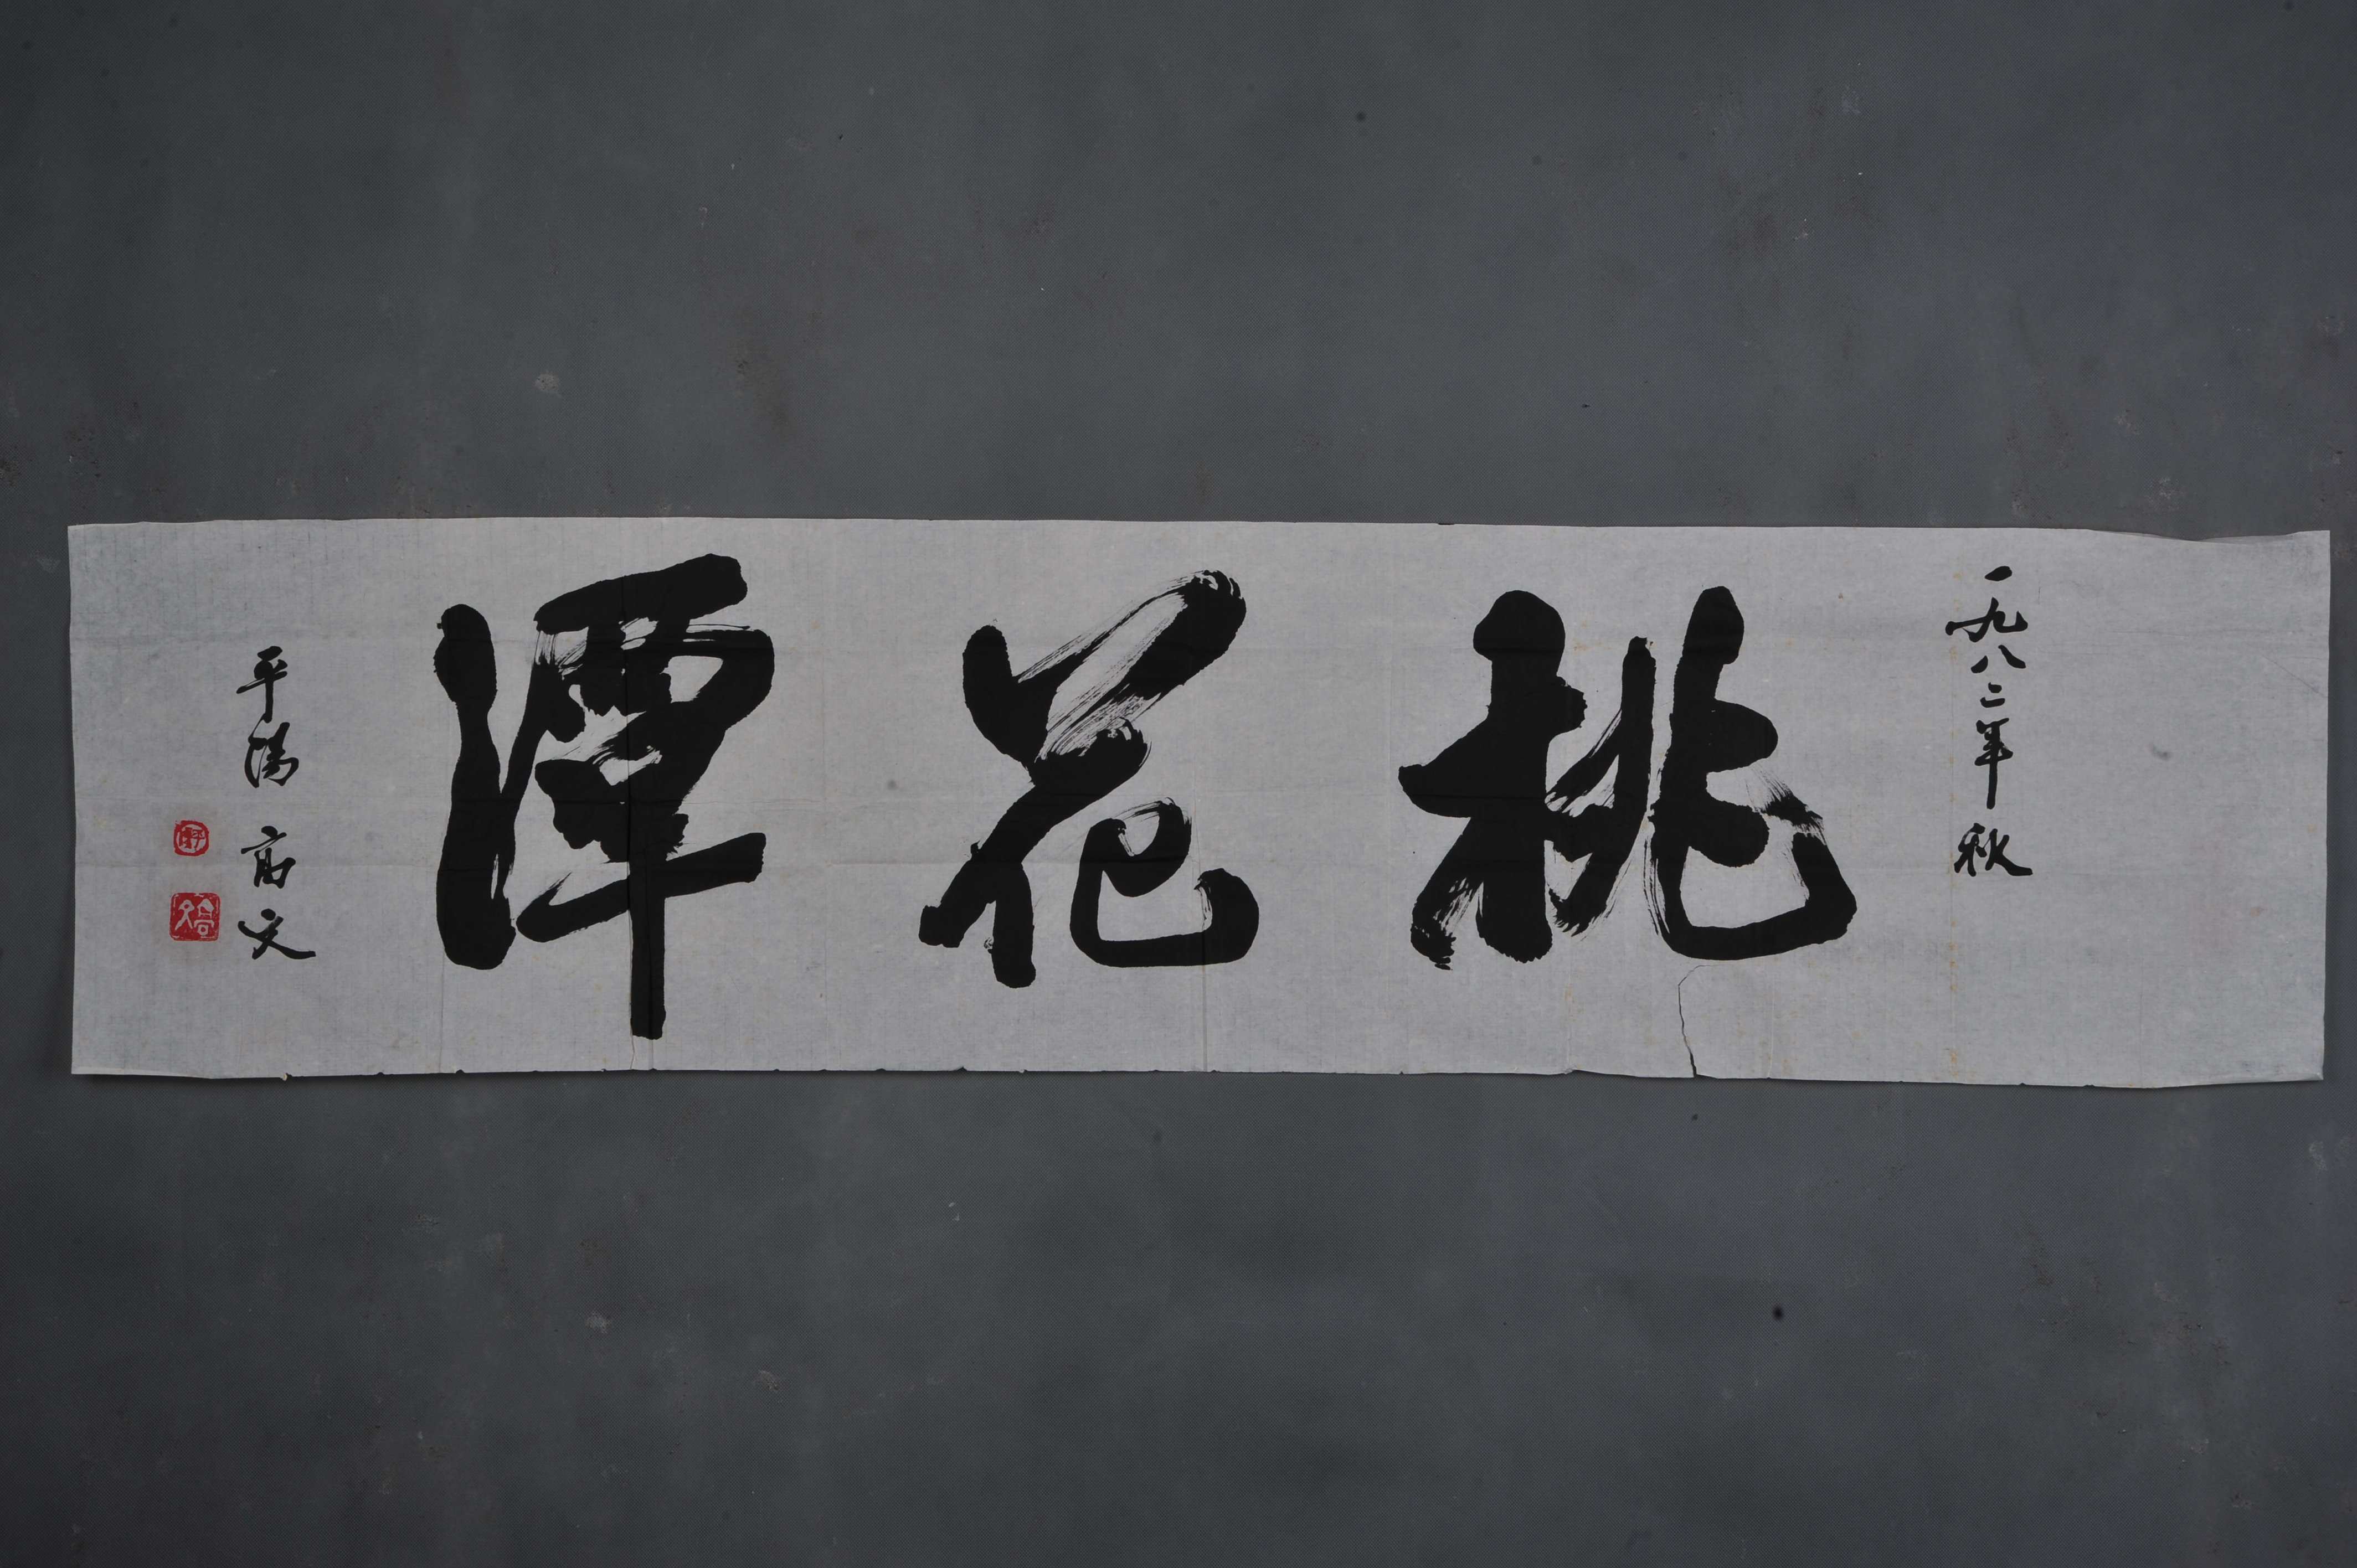 一九八二年秋
桃花潭
平陽高文